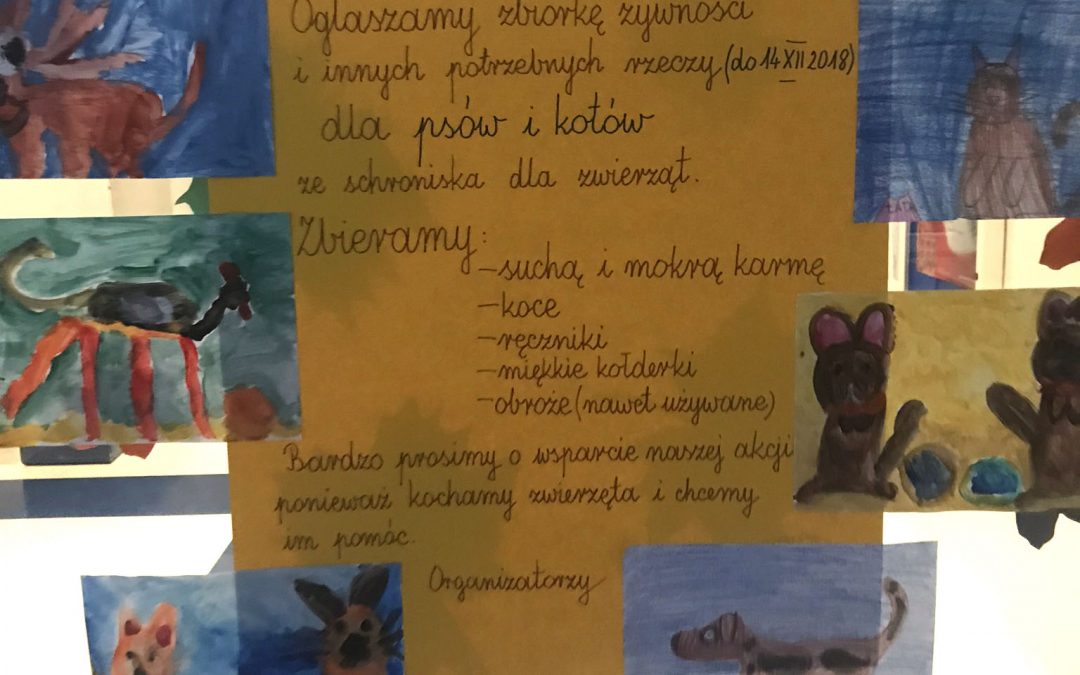 Ogłaszamy zbiórkę żywności
i innych potrzebnych rzeczy (do 14 XII 2018)
dla psów i kotów
ze schroniska dla zwierząt.
Zbieramy:
- suchą i mokrą karmę
- koce
- ręczniki
- miękkie kołderki
- obroże (nawet używane)
Bardzo prosimy o wsparcie naszej akcji
ponieważ kochamy zwierzęta i chcemy
im pomóc.
Organizatorzy